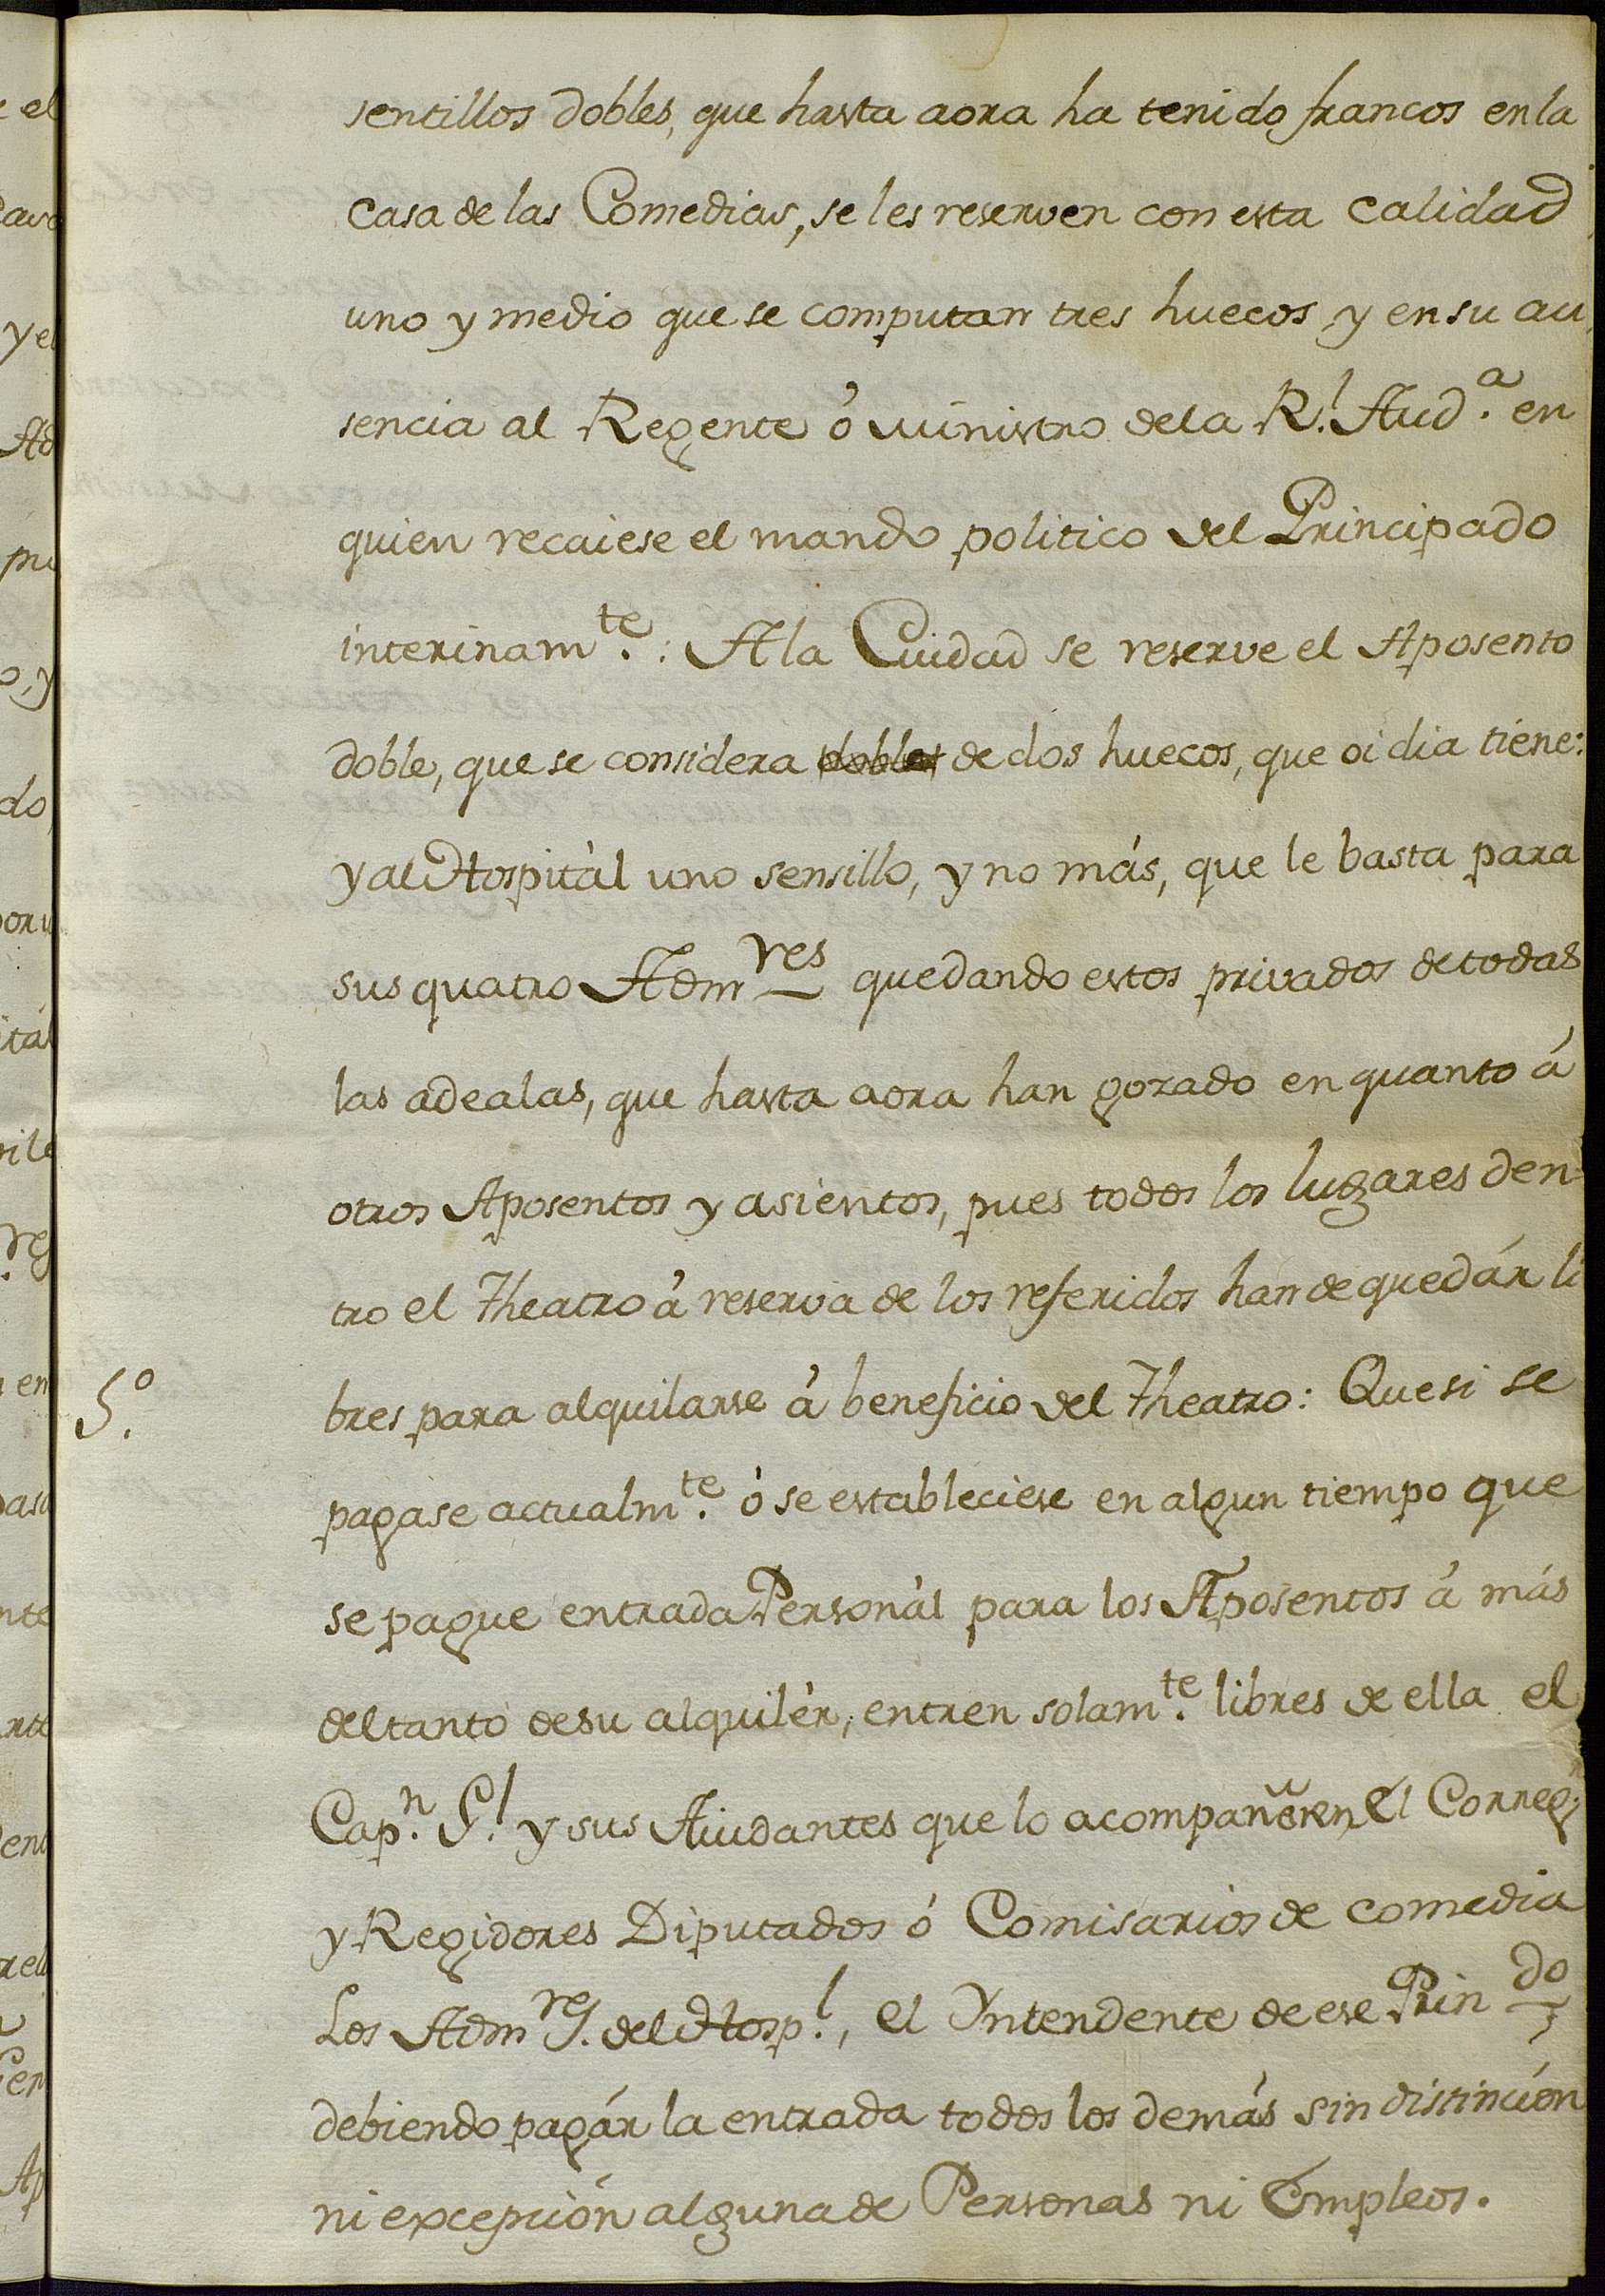 sentillos dobles, que hasta aora ha tenido francos en la
casa de las Comedias, se les reserven con esta calidad
uno y medio que se computan tres huecos, y en su au
sencia al Regente ó Ministro de la R.l Aud.a en
quien recaiese el mando politico del Principado
interinam.te: A la Ciudad se reserve el Aposento
doble, que se considera dobles de dos huecos, que oi dia tiene:
y al Hospitál uno sensillo, y no más, que le basta para
sus quatro Admres quedando estos privados de todas
las adealas, que hasta aora han gozado en quanto á
otros Aposentos y asientos, pues todos los lugares den-
tro el Theatro á reserva de los referidos hán de quedár li
5.o bres para alquilarse á beneficio del Theatro: Que si se
pagase actualm.te ó se estableciese en algun tiempo que
se pague entrada Personál para los Aposentos á más
del tanto de su alquilér, entren solam.te libres de ella el
Cap.n G.l y sus Aiudantes que lo acompañen, el Correg.r
y Regidores Diputados ó Comisarios de comedia
Los Admres. del Hosp.l, el Yntendente de ese Prindo
debiendo pagár la entrada todos los demás sin distincion
ni excepción alguna de Personas ni Empleos.